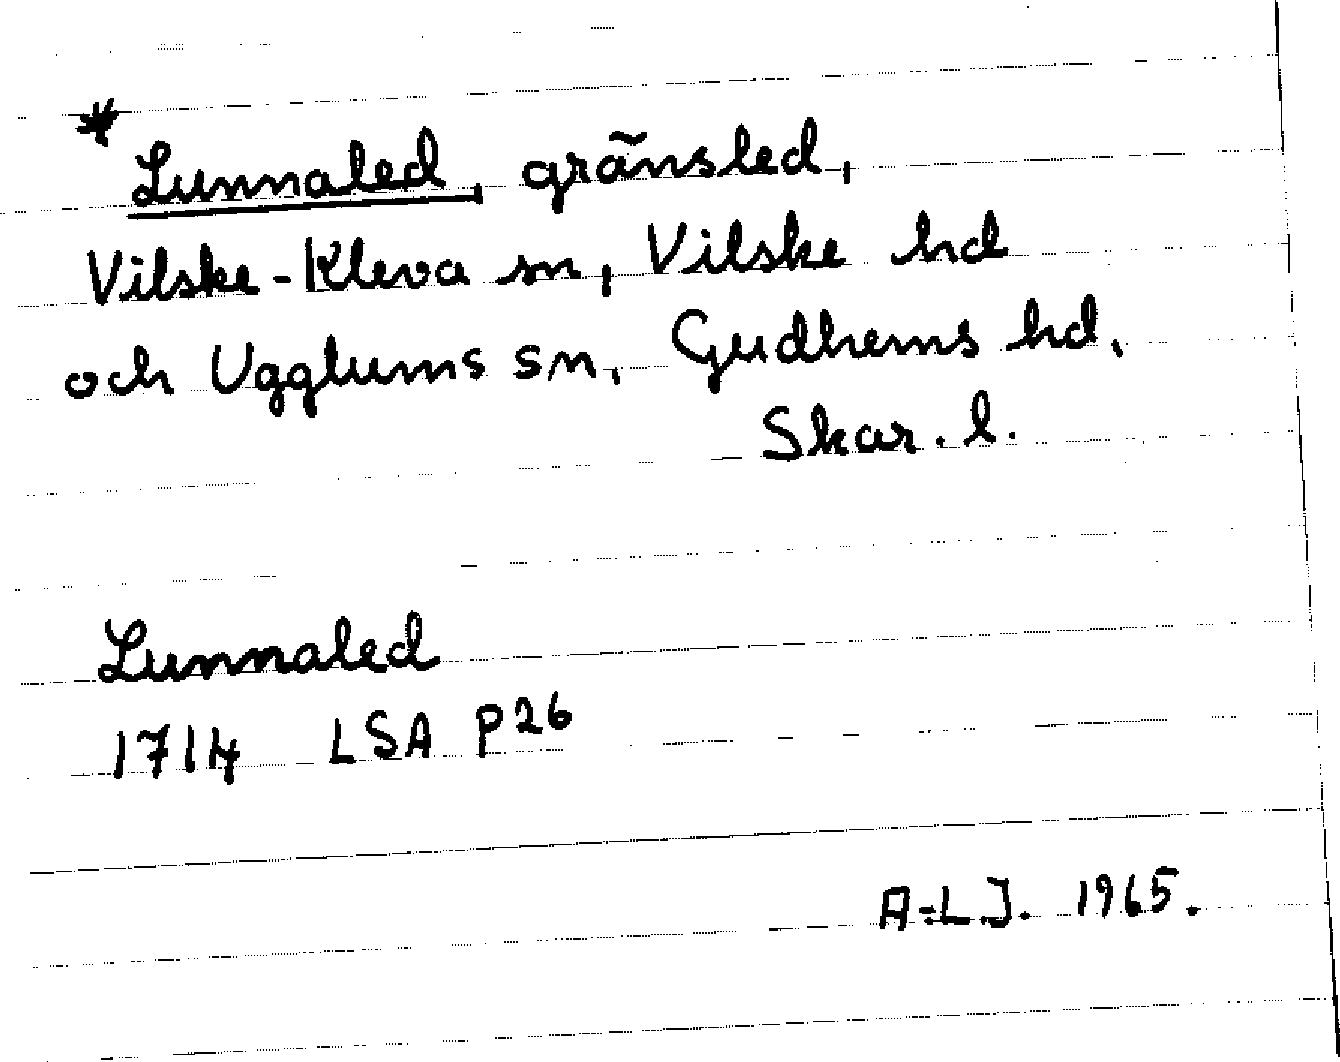 * Lunnaled, gränsled,
Vilske-Kleva sn, Vilske hd
och Ugglums sn, Gudhems hd,
Skar. l.
Lunnaled
1714 LSA P26
A-L.J. 1965.